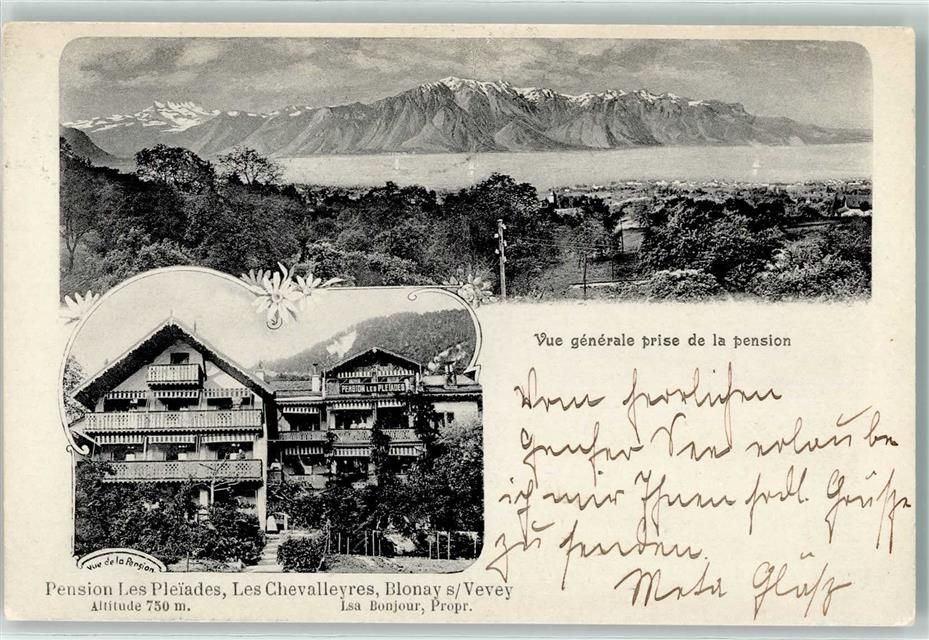 Vue générale prise de la pension
Vom herrlichen
Genfer See erlaube
ich mir Ihnen frdl. Grüße
zu senden.
Meta
PENSION LES PLEÏADES
Vue de la Pension
Pension Les Pleïades, Les Chevalleyres, Blonay s/Vevey
Altitude 750 m. Lsa Bonjour, Propr.